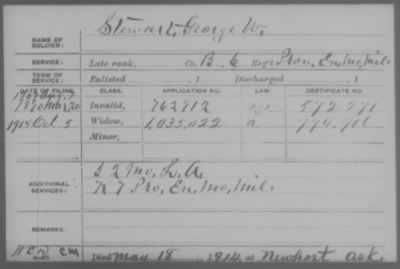 Stewart, George W.
NAME OF SOLDIER:
SERVICE: Late rank, Co. B, 6 Reg't Prov. En. Mo. Mil.
TERM OF SERVICE: Enlisted , 1 Discharged , 1
DATE OF FILING. CLASS. APPLICATION NO. LAW. CERTIFICATE NO.
1890 20 Invalid, 762712 572.271
1915 Oct. 5 Widow, 1,035,022 a 794.716
Minor,
ADDITIONAL SERVICES: I 2 Mo. L. A.
K 7 Pro. En. Mo. Mil.
REMARKS:
Died May 18, 1914, at Newport Ark.